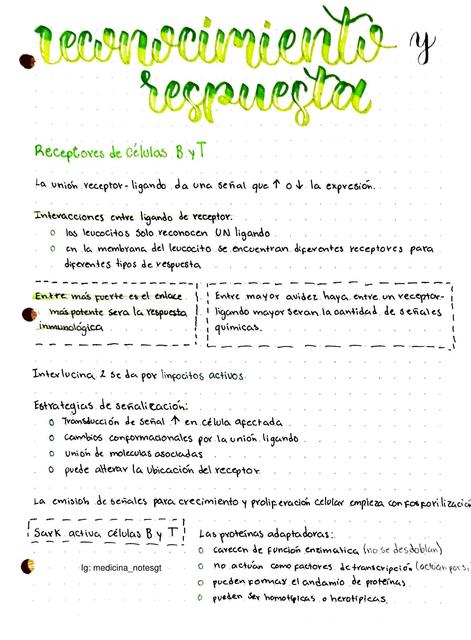 reconocimiento y
respuesta
Receptores de células B y T
La unión receptor-ligando da una señal que ↑ o ↓ la expresión.
Interacciones entre ligando de receptor:
o los leucocitos solo reconocen UN ligando
o en la membrana del leucocito se encuentran diferentes receptores para
diferentes tipos de respuesta
Entre más fuerte es el enlace
más potente sera la respuesta
inmunológica
Entre mayor avidez haya entre un receptor-
ligando mayor seran la cantidad de señales
químicas.
Interlucina 2 se da por linfocitos activos.
Estrategias de señalización:
o Transducción de señal ↑ en célula afectada
o cambios conformacionales por la unión ligando
o unión de moleculas asociadas
o puede alterar la ubicación del receptor
La emisión de señales para crecimiento y proliferación celular empieza con fosforilización
Sark activa células B y T
Las proteínas adaptadoras:
o carecen de función enzimatica (no se desdoblan)
o no actúan como factores de transcripción (actúan por si
o pueden formar el andamio de proteínas
o pueden ser homotípicas o herotipicas
Ig: medicina_notesgt